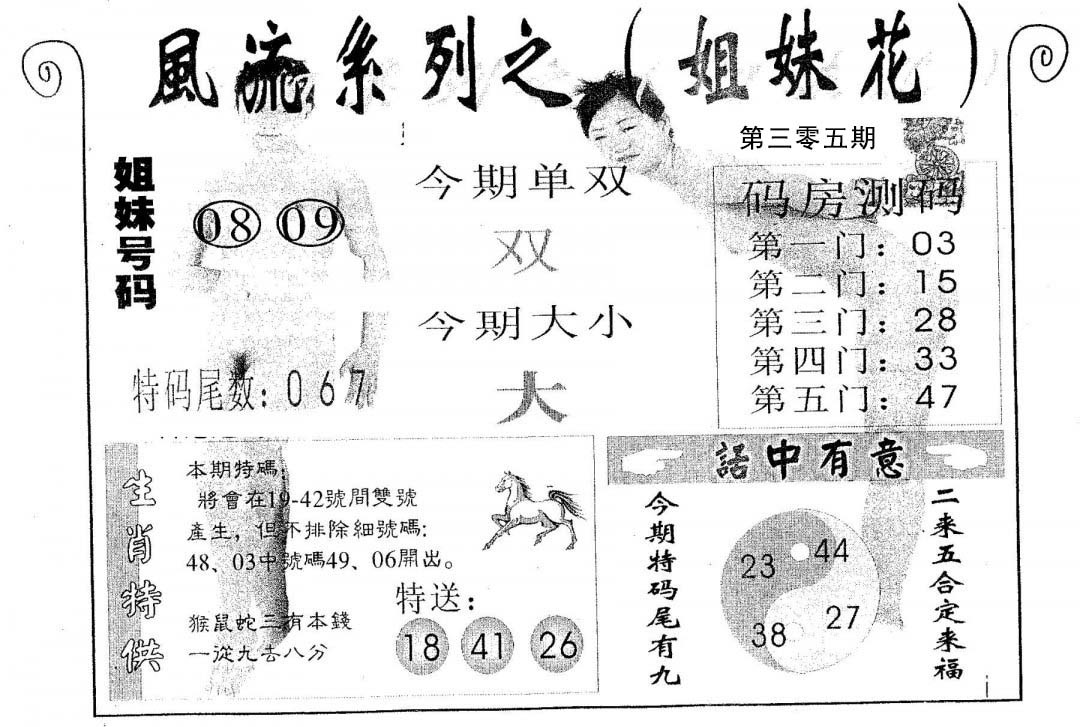 風流系列之（姐妹花）
第三零五期
姐妹号码
08 09
今期单双
双
今期大小
大
特码尾数：067
码房测码
第一门：03
第二门：15
第三门：28
第四门：33
第五门：47
生肖特供
本期特碼：
將會在19-42號間雙號
產生，但不排除細號碼：
48、03中號碼49、06開出。
猴鼠蛇三有本錢
一從九去八分
特送：
18 41 26
話中有意
今期特码尾有九
23 44
38 27
二来五合定来福